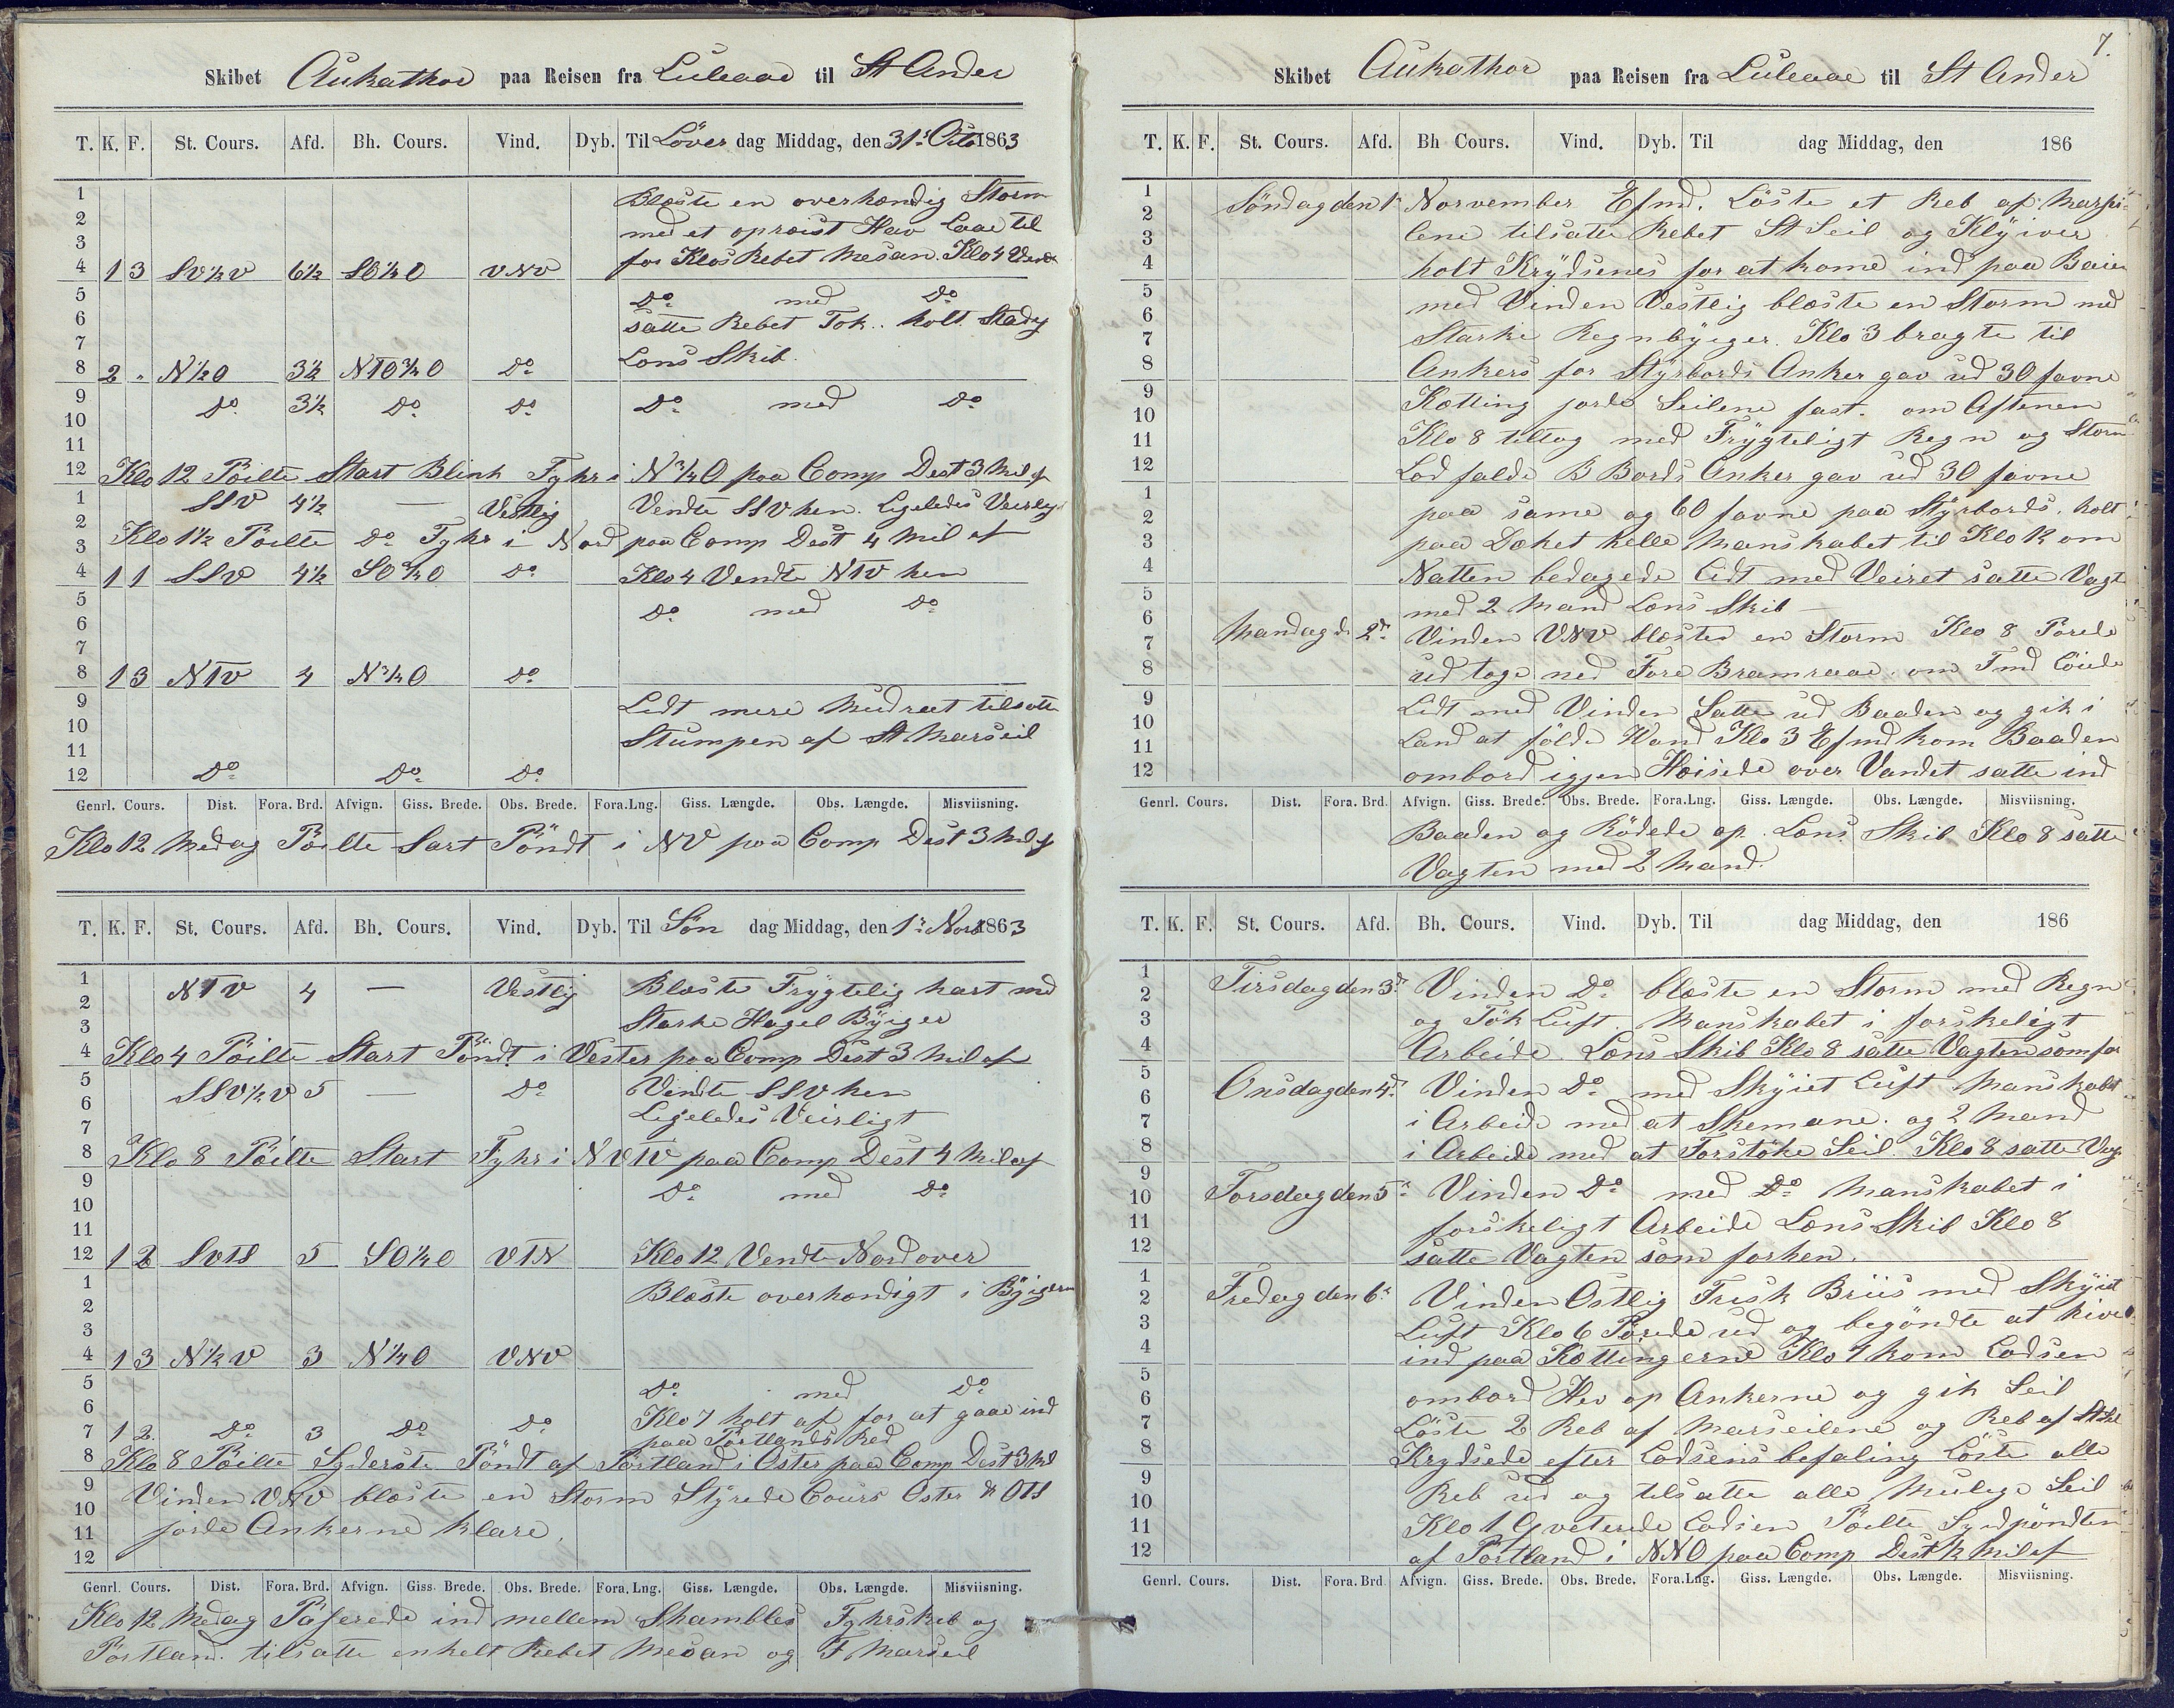 Skibet Aukathor paa Reisen fra Luleaae til St Ander
T. K. F. St. Cours. Afd. Bh. Cours. Vind. Dyb. Til Löver dag Middag, den 31s Octo 1863
1 Blæste en overhændig Storm
2 med et oprøist Hav Laae til
3 for Klos Rebet Mesan. Klo 4 Vendt
4 1 3 SV½V 6½ SO¼O VNV
5 Do med Do
6 satte Rebet Fok. holt Stadig
7 Lens Skib.
8 2 „ N½O 3½ NTO¾O Do
9 Do 3½ Do Do Do med Do
10
11
12 Klo 12 Pöilte Start Blink Fyhr i N¾O paa Comp Dest 3 Mil af
1 SSV 4½ — Vestlig Vendte SSV hen. Ligeledes Veirligt
2 Klo 1½ Pöilte Do Fyhr i Nord paa Comp Dest 4 Mil af
3
4 1 1 SSV 4½ SO¾O Do Klo 4 Vendte NTV hen
5 Do med Do
6
7
8 1 3 NTV 4 N¾O Do
9 Lidt mere Mudraet tilsatte
10 Stumpen af St Marseil
11
12 Do Do Do
Genrl. Cours. Dist. Fora. Brd. Afvign. Giss. Brede. Obs. Brede. Fora. Lng. Giss. Længde. Obs. Længde. Misviisning.
Klo 12 Medag Pöilte Sart Pöndt i NV paa Comp Dest 3 Mil af
T. K. F. St. Cours. Afd. Bh. Cours. Vind. Dyb. Til Sön dag Middag, den 1s Novr 1863
1 NTV 4 — Vestlig Blæste Frygtelig hart med
2 Starke Hagel Byiger
3
4 Klo 4 Pöilte Start Pöndt i Vester paa Comp Dest 3 Mil af
5 SSV½V 5 — Do Vendte SSV hen
6 Ligeledes Veirligt
7
8 Klo 8 Pöilte Start Fyhr i NVTV paa Comp Dest 4 Mil af
9 Do med Do
10
11
12 1 2 SVTS 5 SO¼O VTN Klo 12 Vendte Nordover
1 Blæste overhændigt i Byigerne
2
3
4 1 3 N½V 3 N¼O VNV
5 Do med Do
6 Klo 7 holt af for at gaae ind
7 1 2 Do 3 Do Do paa Portlands Red
8 Klo 8 Pöilte Syderste Pöndt af Portland i Öster paa Comp Dest 3 Mil
9 Vinden VNV blæste en Storm Styrede Cours Öster & OTS
10 jorde Ankerne klare.
11
12
Genrl. Cours. Dist. Fora. Brd. Afvign. Giss. Brede. Obs. Brede. Fora. Lng. Giss. Længde. Obs. Længde. Misviisning.
Klo 12 Medag Paserede ind mellem Shambles Fyhrskib og
Portland. tilsatte enkelt Rebet Mesan og F Marseil
7.
Skibet Aukathor paa Reisen fra Luleaae til St Ander
T. K. F. St. Cours. Afd. Bh Cours. Vind. Dyb. Til dag Middag, den 186
1 Söndag den 1s Norvember Efmd. Löste et Reb af Marsei=
2 lene tilsatte Rebet St Seil og Klyiver
3 holt Krydsenes for at kome ind paa Baien
4 med Vinden Vestlig blæste en Storm med
5 Starke Regnbyiger. Klo 3 bragte til
6 Ankers for Styrbords Anker gav ud 30 favne
7 Kætting jorde Seilene fast. om Aftenen
8 Klo 8 tiltog med Frygteligt Regn og Storm
9 Lod falde B Bords Anker gav ud 30 favne
10 paa same og 60 favne paa Styrbords. holt
11 paa Dæket helle Manskabet til Klo 12 om
12 Natten bedagede Lidt med Veiret satte Vagt
1 med 2 Mand Lens Skib —
2 Mandag d. 2d Vinden VNV blæste en Storm Klo 8 Porede
3 ud toge ned Fore Bramraae. om Fmd Löiede
4 Lidt med Vinden Satte ud Baaden og gik i
5 Land at földe Vand Klo 3 Efmd kom Baaden
6 ombord igjen Heisede over Vandet satte ind
7
8
9
10
11
12
Genrl. Cours. Dist. Fora. Brd. Afvign. Giss. Brede. Obs. Brede. Fora. Lng. Giss. Længde. Obs. Længde. Misviisning.
Baaden og Rödede op. Lens Skib Klo 8 satte
Vagten med 2 Mand.
T. K. F. St. Cours. Afd. Bh. Cours. Vind. Dyb. Til dag Middag, den 186
1 Tirsdag den 3d Vinden Do blæste en Storm med Regn
2 og Tök Luft. Manskabet i forskeligt
3 Arbeide. Lens Skib Klo 8 satte Vagten som for
4
5 Onsdag den 4d Vinden Do med Skyiet Luft Manskabet
6 i Arbeide med at Skemane. og 2 Mand
7 i Arbeide med at Forstöke Seil. Klo 8 satte Vag
8
9 Torsdag den 5t Vinden Do med Do Manskabet i
10 forskeligt Arbeide Lens Skib Klo 8
11 satte Vagten som forhen.
12
1 Fredag den 6t Vinden Östlig Frisk Briis med Skyiet
2 Luft Klo 6 Porede ud og begöndte at hive
3 ind paa Kættingerne Klo 7 kom Lodsen
4 ombord Hev op Ankerne og gik Seil
5 Löste 2 Reb af Marseilene og Reb af St Sl
6 Krydsede efter Lodsens befaling Löste alle
7 Reb ud og tilsatte alle Mulige Seil
8 Klo 1 Qveterede Lodsen Pöilte Sydpöndten
9 af Portland i NNO paa Comp Dest ½ Mil af
10
11
12
Genrl. Cours. Dist. Fora. Brd Afvign. Giss. Brede. Obs. Brede. Fora. Lng. Giss. Længde. Obs. Længde. Misviisning.